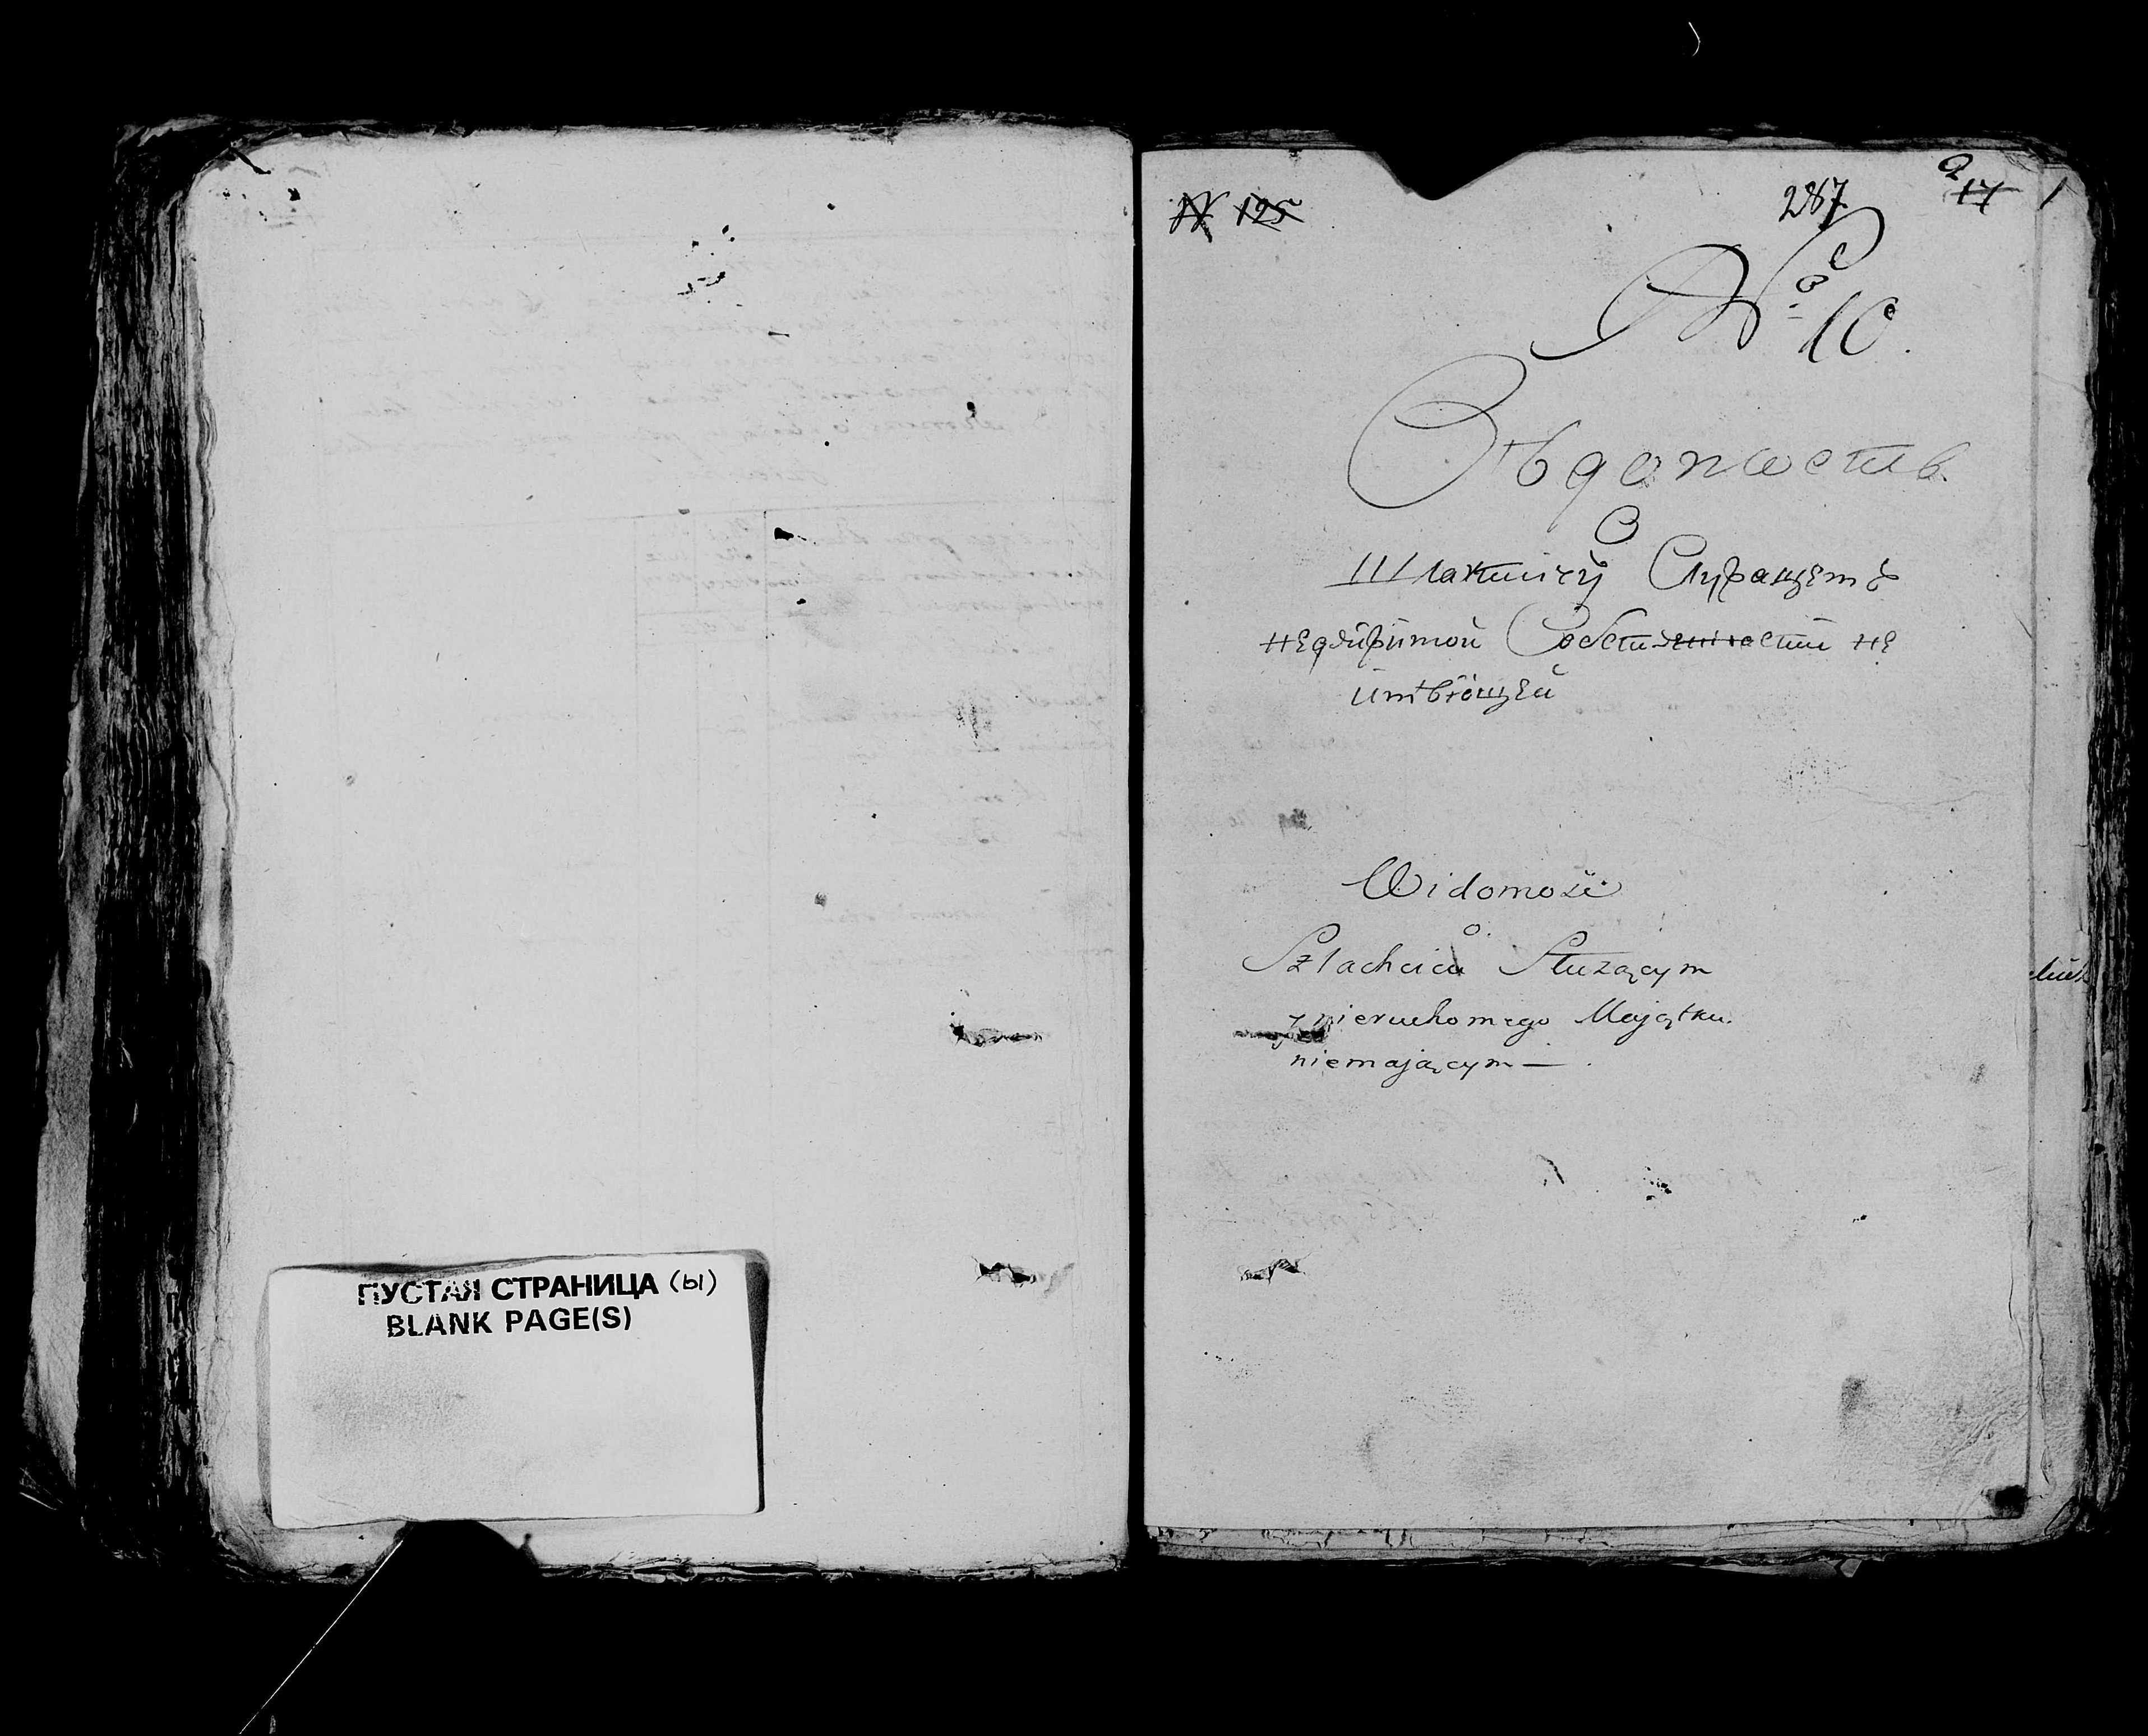 ПУСТАЯ СТРАНИЦА (ы)
BLANK PAGE(S)
№ 125
287
17
1
№ 10.
Вѣдомость
О
Шляхтичу
недвижимой не
имѣющей
Widomość
o
Szlachcicu Służącym
nieruchomego Majątku
niemającym —